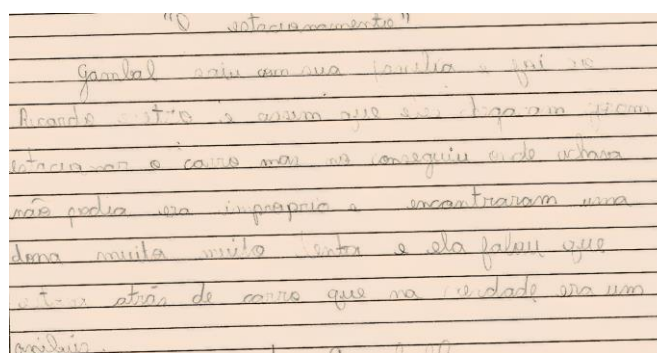 "O estacionamento"
Gambal saiu com sua família e foi no
Ricardo e assim que eles chegaram foram
estacionar o carro mas no conseguiu onde achava
não podia era improprio e encontraram uma
dona muita muito lenta e ela falou que
atrás de carro que na verdade era um
onibus.